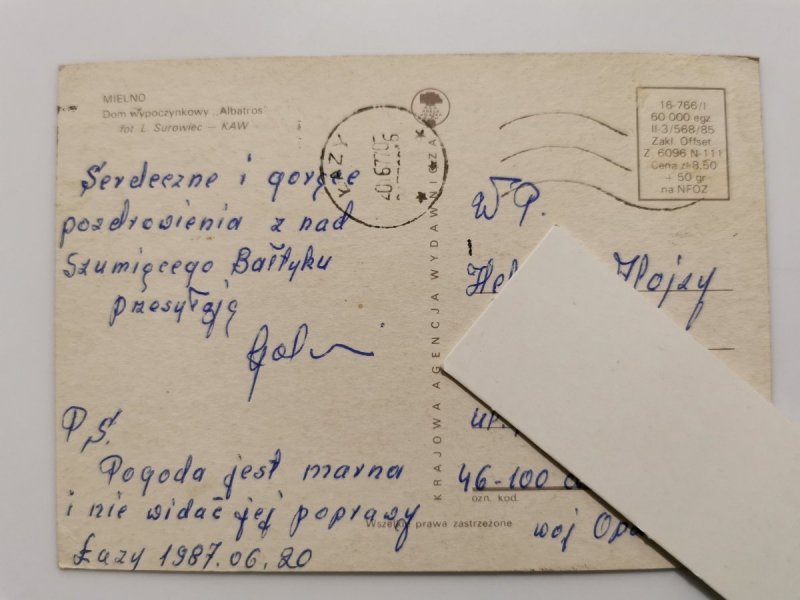 MIELNO
Dom wypoczynkowy „Albatros"
fot. L. Surowiec — KAW
Serdeczne i gorące
pozdrowienia z nad
Szumiącego Bałtyku
przesyłają
PS.
Pogoda jest marna
i nie widać jej poprawy
Łazy 1987.06.20
ŁAZY
KRAJOWA AGENCJA WYDAWNICZA
16-766/I
60 000 egz
II-3/568/85
Zakł. Offset
Z. 6096 N-111
Cena zł 8,50
+ 50 gr
na NFOZ
W.P.
Hojzy
46-100
ozn. kod.
woj
Wszelkie prawa zastrzeżone